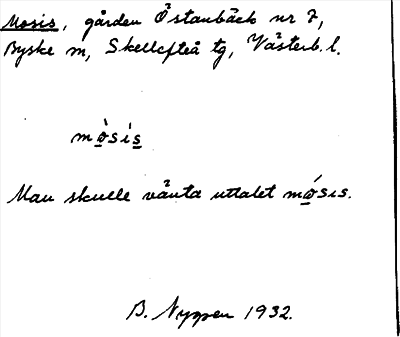 Mosis, gården Östanbäck nr 7,
Byske sn, Skellefteå tg, Västerb. l.
mò̲sís̲
Man skulle vänta uttalet mó̲sıs.
B. Nygren 1932.